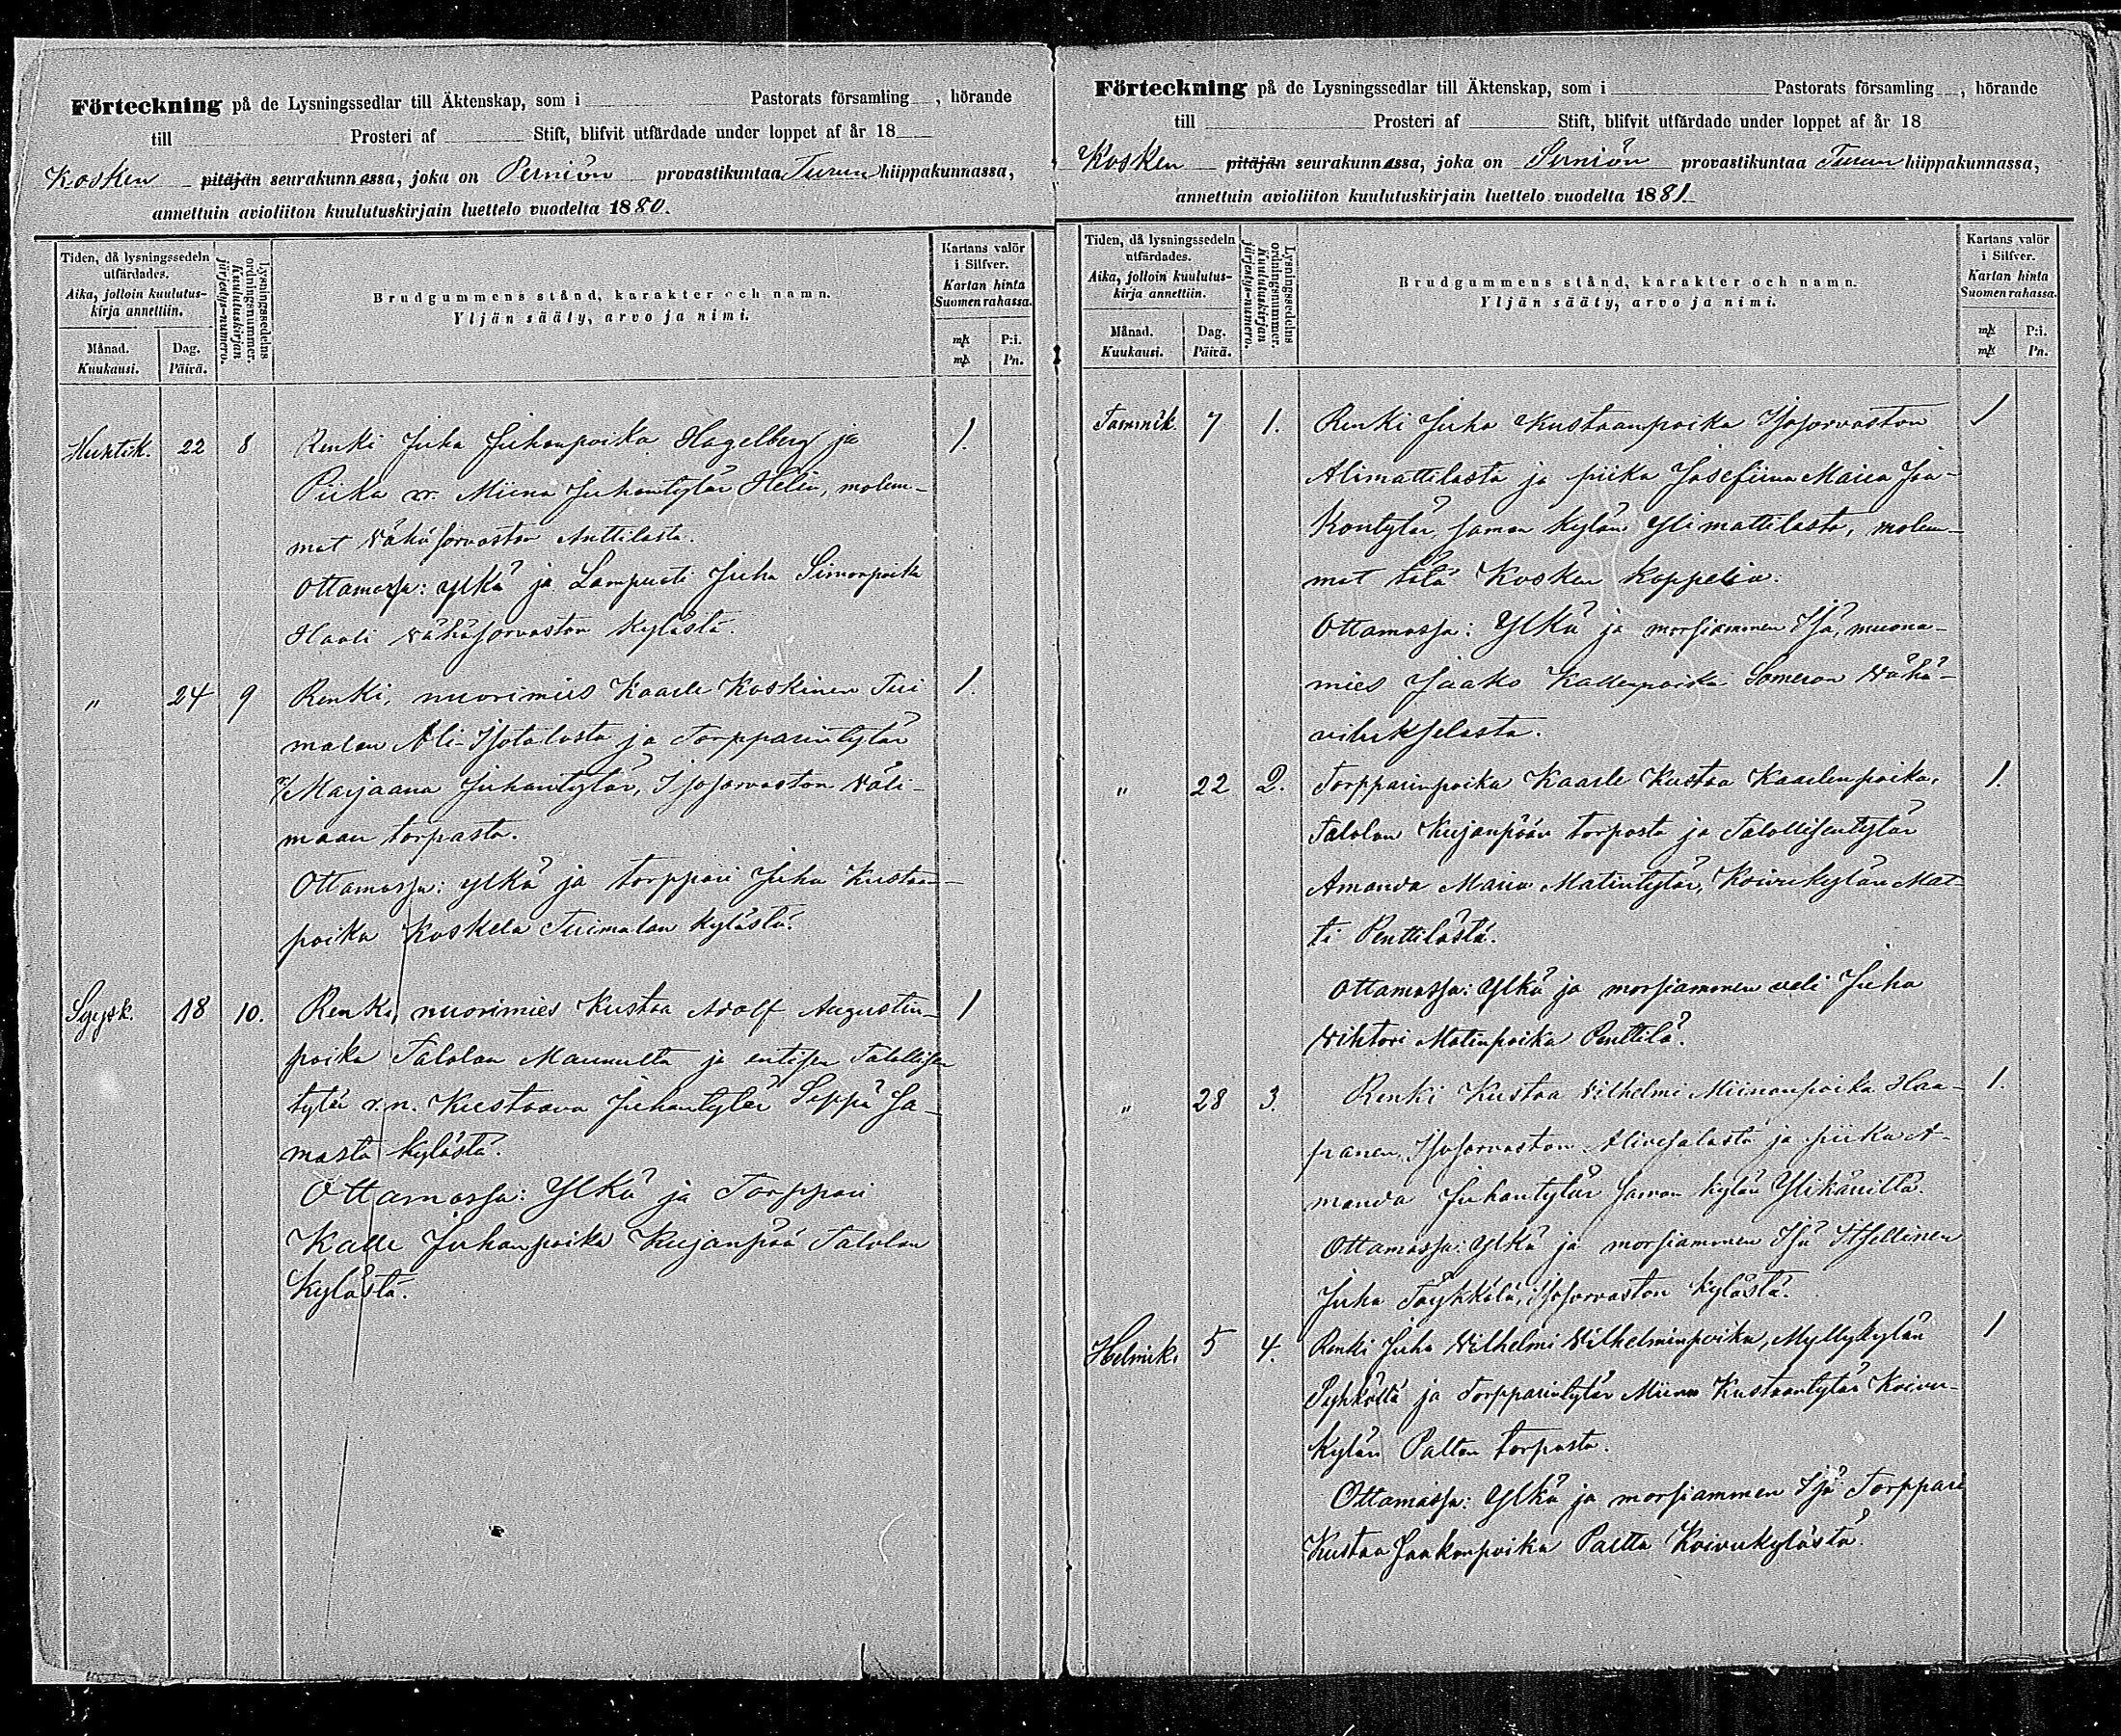 Förteckning på de Lysningssedlar till Äktenskap, som i Pastorats församling , hörande
till Prosteri af Stift, blifvit utfärdade under loppet af år 18
Kosken pitäjän seurakunnassa, joka on Perniön provastikuntaa Turun hiippakunnassa,
annettuin avioliiton kuulutuskirjain luettelo vuodelta 1880.
Tiden, då lysningssedeln utfärdades.
Aika, jolloin kuulutus-
kirja annettiin.
Månad.
Kuukausi.
Dag.
Päivä.
Lysningssedelns ordningsnummer.
Kuulutuskirjan järjestys-numero.
Brudgummens stånd, karakter och namn.
Yljän sääty, arvo ja nimi.
Kartans valör
i Silfver.
Kartan hinta
Suomen rahassa.
mk P:i.
mk Pn.
Huhtik. 22 8 Renki Juha Juhanpoika Hagelberg ja 1.
Piika Miina Juhantytär Helin, molem-
mat Vähäsorvaston Anttilasta.
Ottamassa: Ylkä ja Lampuoti Juha Simonpoika
Haali Vähäsorvaston kylästä.
" 24 9 Renki, nuorimies Kaarle Koskinen Tui 1.
malan Ali-Isotalosta ja Torpparintytär
Marjaana Juhantytär, Isosorvaston Väli-
maan torpasta.
Ottamassa: Ylkä ja torppari Juha Kustaan-
poika Koskela Tuimalan kylästä.
Syysk. 18 10. Renki, nuorimies Kustaa Adolf Augustin- 1
poika Talolan Maunulta ja entisen Talollisen
tytär v.n. Kustaava Juhantytär Seppä sa-
masta kylästä.
Ottamassa: Ylkä ja Torppari
Kalle Juhanpoika Kujanpää Talolan
kylästä.
Förteckning på de Lysningssedlar till Äktenskap, som i Pastorats församling , hörande
till Prosteri af Stift, blifvit utfärdade under loppet af år 18
Kosken pitäjän seurakunnassa, joka on Perniön provastikuntaa Turun hiippakunnassa,
annettuin avioliiton kuulutuskirjain luettelo vuodelta 1881.
Tiden, då lysningssedeln
utfärdades.
Aika, jolloin kuulutus-
kirja annettiin.
Månad.
Kuukausi.
Dag.
Päivä.
Lysningssedelns ordningsnummer.
Kuulutuskirjan järjestys-numero.
Brudgummens stånd, karakter och namn.
Yljän sääty, arvo ja nimi.
Kartans valör
i Silfver.
Kartan hinta
Suomen rahassa.
mk P:i.
mk Pn.
Tammik. 7 1. Renki Juha Kustaanpoika Isosorvaston 1
Alimattilasta ja piika Josefiina Maria Jaa-
kontytär, saman kylän Ylimattilasta, molem-
mat tätä Kosken kappelia.
Ottamassa: Ylkä ja morsiammen Isä, muona-
mies Jaako Kallenpoika Someron Vähä-
vilukselasta.
" 22 2. Torpparinpoika Kaarle Kustaa Kaarlenpoika, 1.
Talolan Kujanpään torpasta ja Talollisentytär
Amanda Maria Matintytär, Koivukylän Mat-
ti Penttilästä.
Ottamassa: Ylkä ja morsiammen veli Juha
Vihtori Matinpoika Penttilä.
" 28 3. Renki Kustaa Vilhelmi Miinanpoika Haa- 1.
panen, Isosorvaston Alivesalasta ja piika A-
manda Juhantytär saman kylän Ylikäniltä.
Ottamassa: Ylkä ja morsiammen Isä Itsellinen
Juha Töykkälä, Isosorvaston kylästä.
Helmik. 5 4. Renki Juha Vilhelmi Vilhelminpoika, Myllykylän 1
Pyhköltä ja Torpparintytär Miina Kustaantytär Koivu-
kylän Paltan torpasta.
Ottamassa: Ylkä ja morsiammen Isä Torppari
Kustaa Jaakonpoika Paltta Koivukylästä.